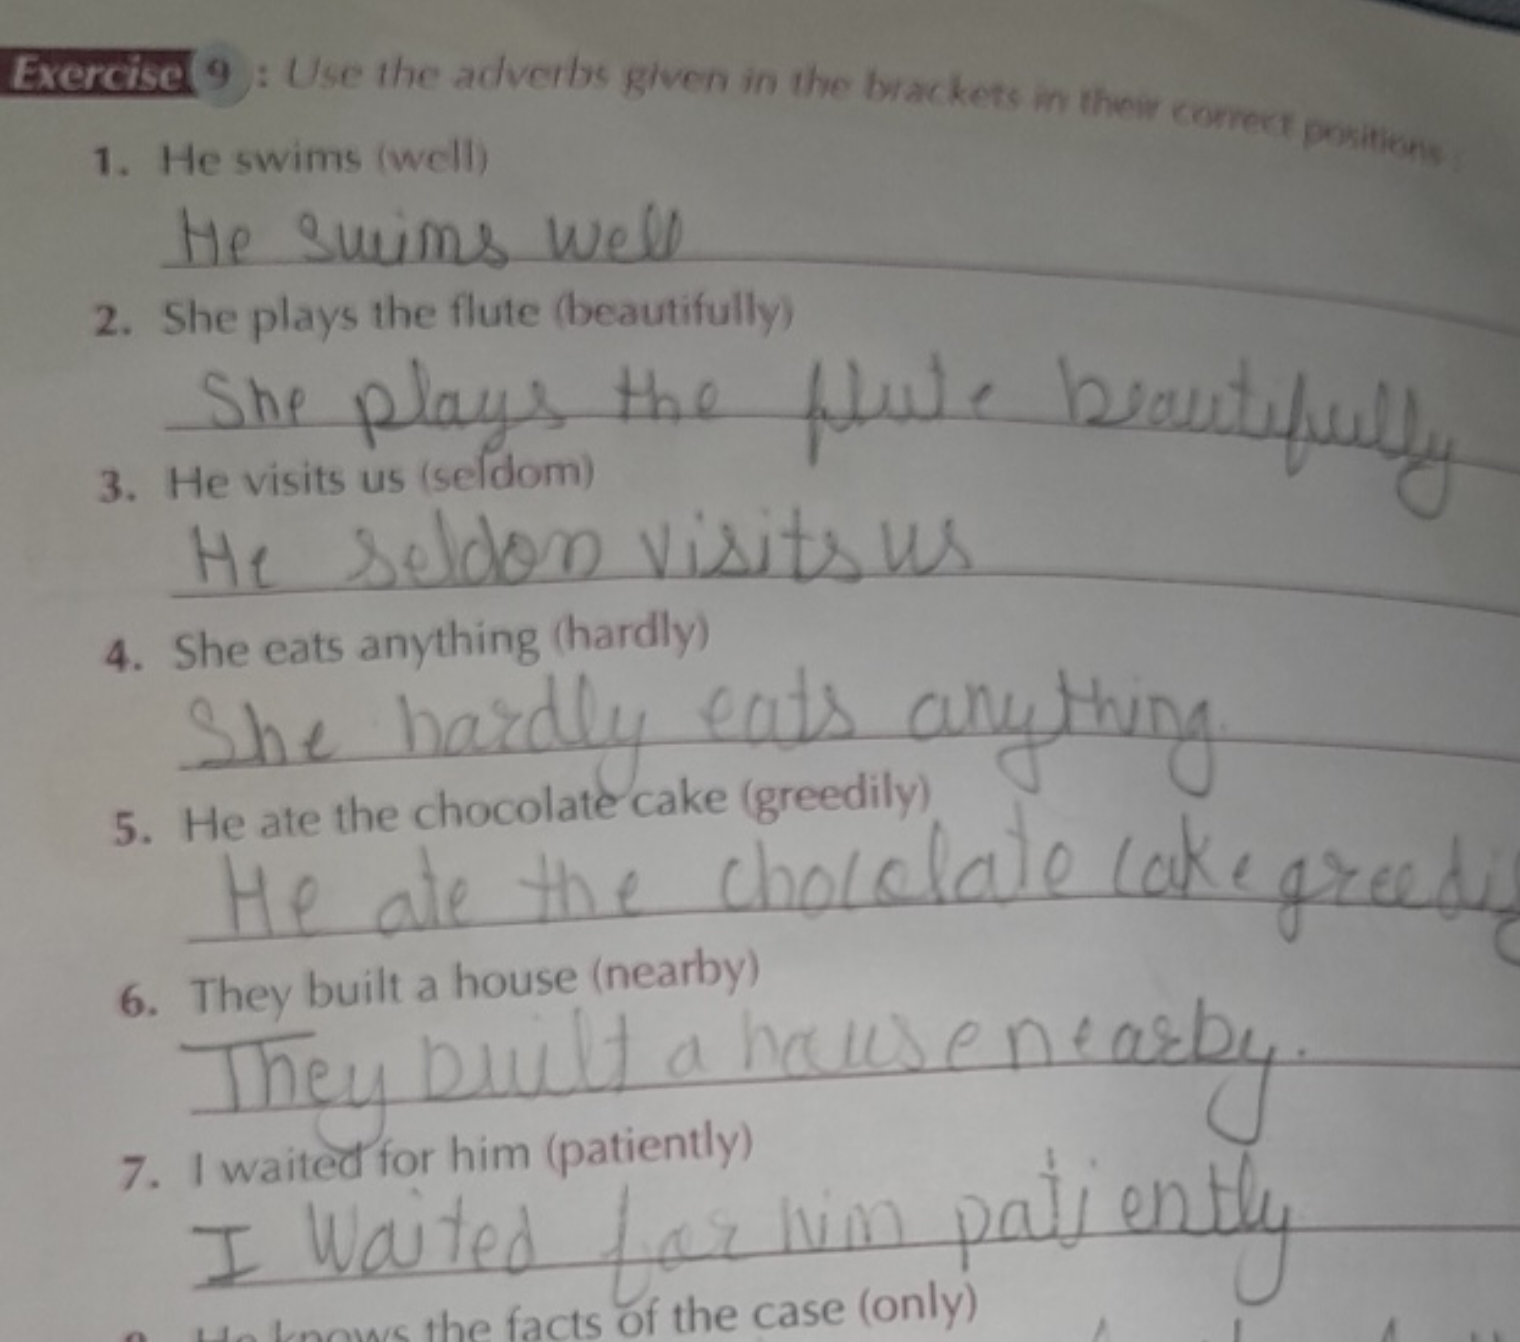 Exercise 9 : Use the adverbs given in the brackets in their correct positions.
1. He swims (well)
He swims well
2. She plays the flute (beautifully)
She plays the flute beautifully
3. He visits us (seldom)
He seldon visits us
4. She eats anything (hardly)
She hardly eats anything.
5. He ate the chocolate cake (greedily)
He ate the chocolate cake greedi
6. They built a house (nearby)
They built a house nearby.
7. I waited for him (patiently)
I Waited for him patiently
He knows the facts of the case (only)